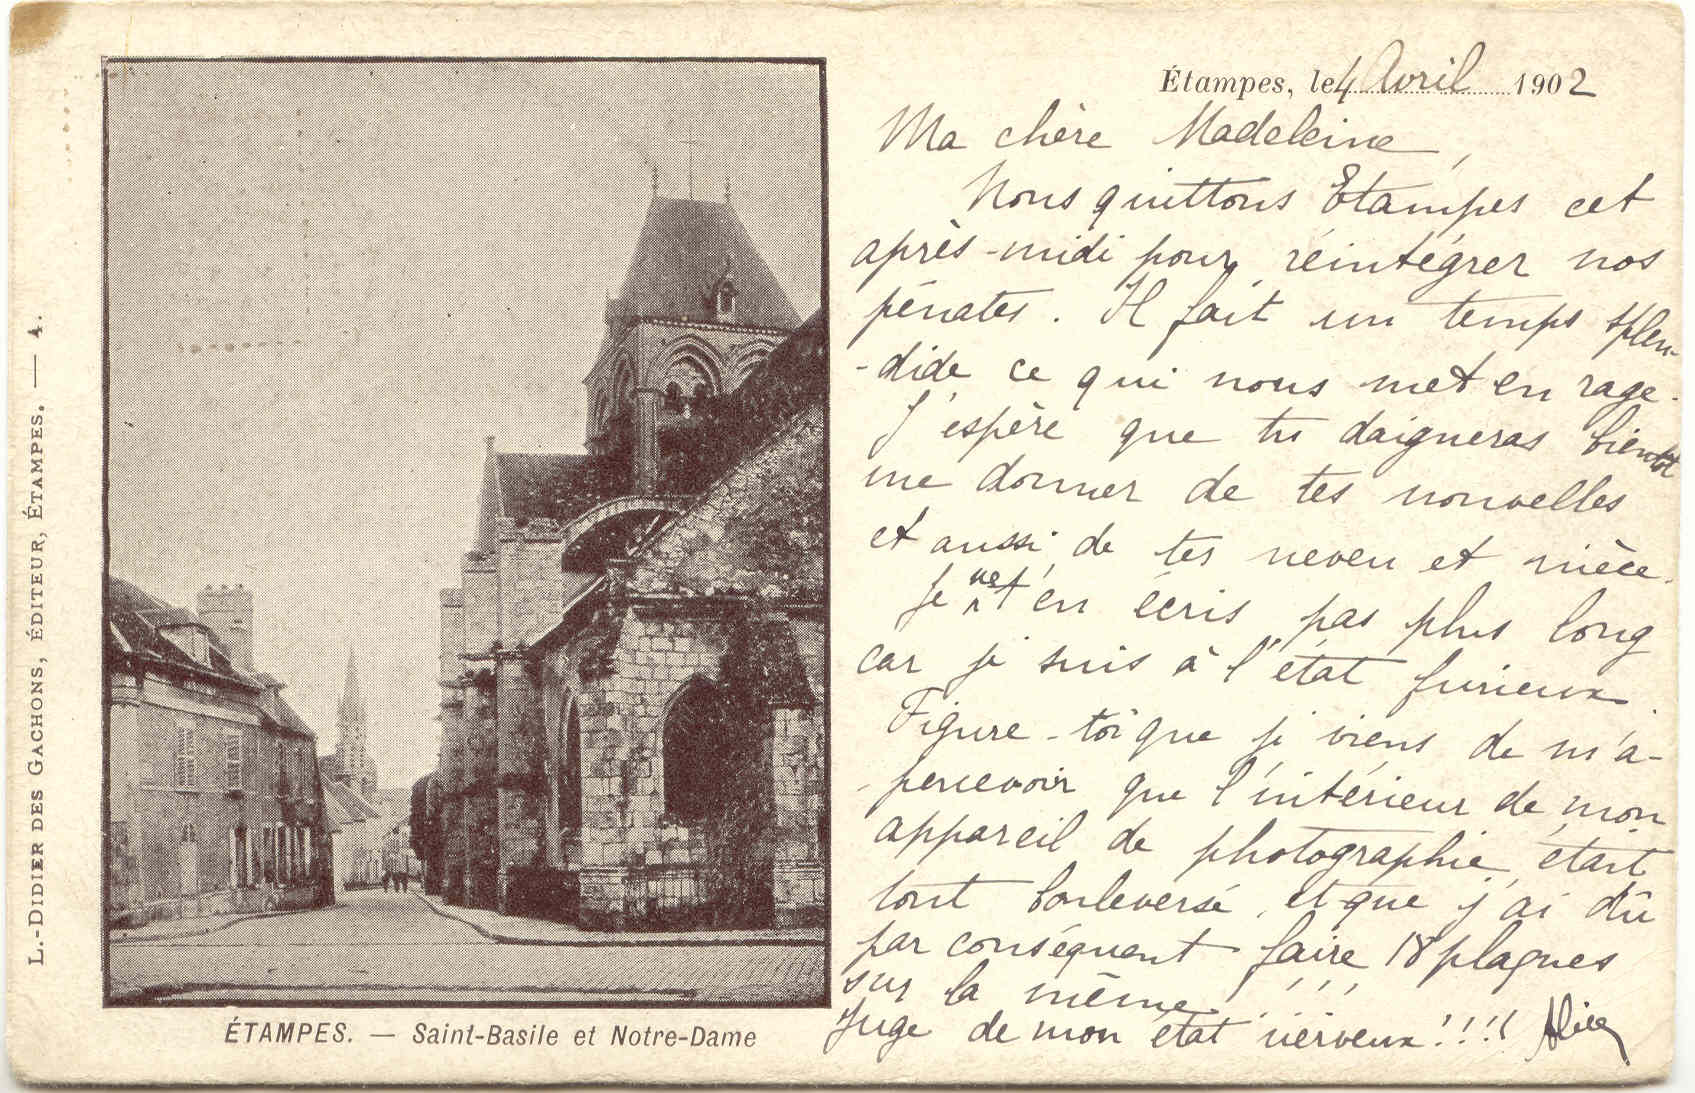 L.-DIDIER DES GACHONS, ÉDITEUR, ÉTAMPES. — 4.
ÉTAMPES. — Saint-Basile et Notre-Dame
Étampes, le 4 Avril 1902
Ma chère Madeleine,
Nous quittons Etampes cet
après-midi pour réintégrer nos
pénates. Il fait un temps splen-
-dide ce qui nous met en rage.
J'espère que tu daigneras bientôt
me donner de tes nouvelles
et aussi de tes neveu et nièce.
Je ne t'en écris pas plus long
car je suis à l'état furieux.
Figure-toi que je viens de m'a-
percevoir que l'intérieur de mon
appareil de photographie était
tout bouleversé, et que j'ai dû
par conséquent faire 18 plaques
sur la même!!!
Juge de mon état nerveux!!!! Alice